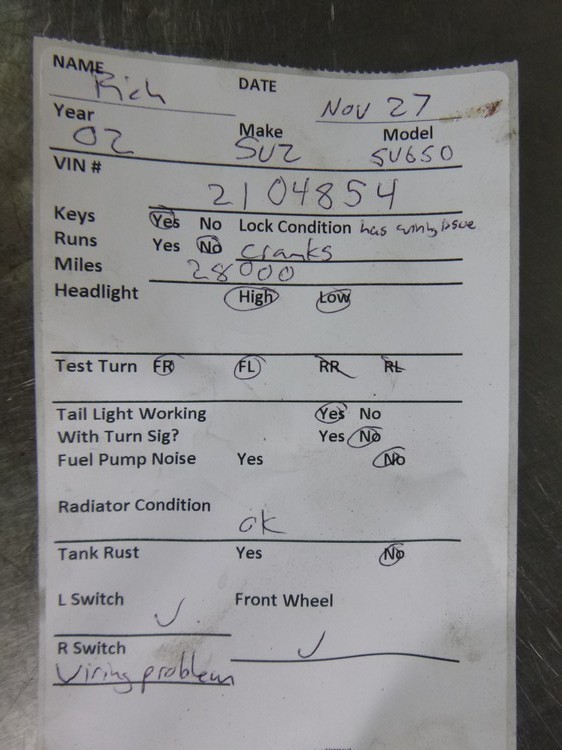 NAME Rich DATE Nov 27
Year 02 Make SUZ Model SV650
VIN # 2104854
Keys Yes No Lock Condition has wiring issue
Runs Yes No cranks
Miles 28000
Headlight High Low
Test Turn FR FL RR RL
Tail Light Working Yes No
With Turn Sig? Yes No
Fuel Pump Noise Yes No
Radiator Condition ok
Tank Rust Yes No
L Switch ✓ Front Wheel ✓
R Switch
Wiring problem